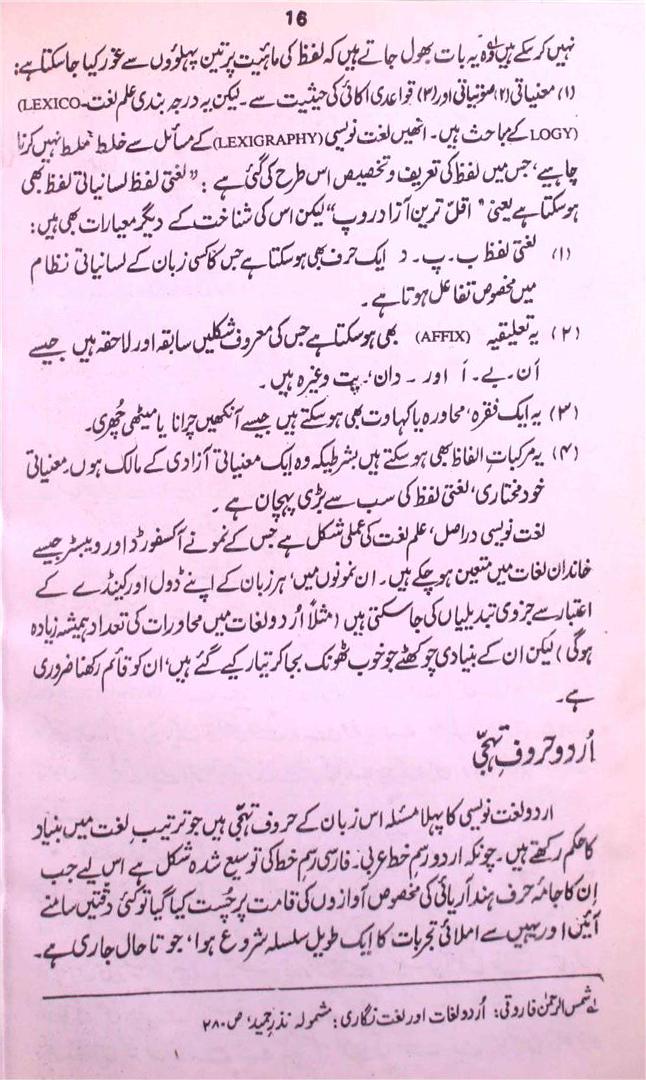 16
نہیں کر سکے ہیں لہ وہ یہ بات بھول جاتے ہیں کہ لفظ کی ماہیت پر تین پہلوؤں سے غور کیا جا سکتا ہے:
(۱) معنیاتی (۲) صوتیاتی اور (۳) قواعدی اکائی کی حیثیت سے ۔ لیکن یہ درجہ بندی علم لغت (LEXICO-
LOGY) کے مباحث ہیں ۔ انھیں لغت نویسی (LEXIGRAPHY) کے مسائل سے خلط ملط نہیں کرنا
چاہیے، جس میں لفظ کی تعریف و تخصیص اس طرح کی گئی ہے : " لغتی لفظ لسانیاتی لفظ بھی
ہو سکتا ہے یعنی " اقل ترین آزاد روپ " لیکن اس کی شناخت کے دیگر معیارات بھی ہیں :
(۱) لغتی لفظ ب ۔ پ ۔ د ایک حرف بھی ہو سکتا ہے جس کا کسی زبان کے لسانیاتی نظام
میں مخصوص تفاعل ہوتا ہے ۔
(۲) یہ تعلیقیہ (AFFIX) بھی ہو سکتا ہے جس کی معروف شکلیں سابقہ اور لاحقہ ہیں جیسے
اَن ۔ بے ۔ اَ اور ۔ دان، ۔ پت وغیرہ ہیں ۔
(۳) یہ ایک فقرہ، محاورہ یا کہاوت بھی ہو سکتے ہیں جیسے آنکھیں چرانا یا میٹھی چھری۔
(۴) یہ مرکباتِ الفاظ بھی ہو سکتے ہیں بشرطیکہ وہ ایک معنیاتی آزادی کے مالک ہوں ۔ معنیاتی
خود مختاری، لغتی لفظ کی سب سے بڑی پہچان ہے ۔
لغت نویسی دراصل، علم لغت کی عملی شکل ہے جس کے نمونے آکسفورڈ اور ویبسٹر جیسے
خاندان لغات میں متعین ہو چکے ہیں ۔ ان نمونوں میں، ہر زبان کے اپنے ڈول اور کینڈے کے
اعتبار سے جزوی تبدیلیاں کی جا سکتی ہیں ( مثلاً اُردو لغات میں محاورات کی تعداد ہمیشہ زیادہ
ہوگی ) لیکن ان کے بنیادی چوکھٹے جو خوب ٹھونک بجا کر تیار کیے گئے ہیں، ان کو قائم رکھنا ضروری
ہے۔
اُردو حروفِ تہجّی
اردو لغت نویسی کا پہلا مسئلہ اس زبان کے حروف تہجّی ہیں جو ترتیبِ لغت میں بنیاد
کا حکم رکھتے ہیں ۔ چونکہ اردو رسم خط عربی ۔ فارسی رسم خط کی توسیع شدہ شکل ہے اس لیے جب
اِن کا جامۂ حرف ہند آریائی کی مخصوص آوازوں کی قامت پر چُست کیا گیا تو کئی دقتیں سامنے
آئیں اور یہیں سے املائی تجربات کا ایک طویل سلسلہ شروع ہوا، جو تا حال جاری ہے ۔
لہ شمس الرحمٰن فاروقی : اُردو لغات اور لغت نگاری : مشمولہ نذرِ حمید، ص ۲۸۰